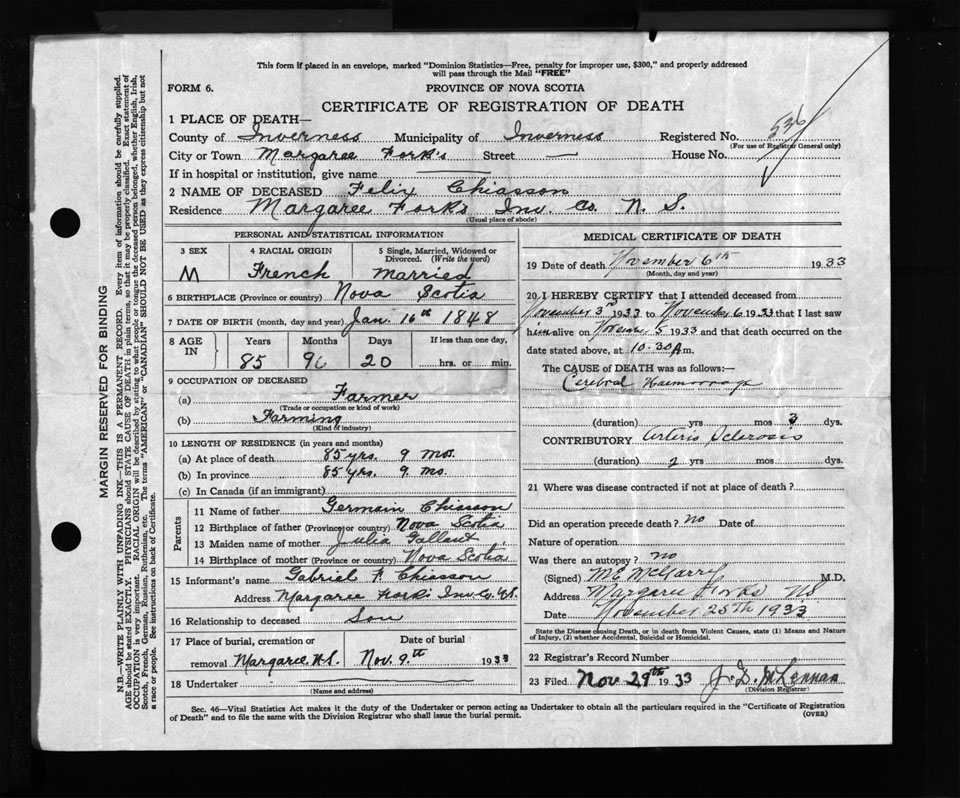 This form if placed in an envelope, marked "Dominion Statistics—Free, penalty for improper use, $300," and properly addressed
will pass through the Mail "FREE"
FORM 6.
PROVINCE OF NOVA SCOTIA
CERTIFICATE OF REGISTRATION OF DEATH
1 PLACE OF DEATH—
County of Inverness Municipality of Inverness Registered No. 536
(For use of Registrar General only)
City or Town Margaree Fork's Street — House No.
If in hospital or institution, give name
2 NAME OF DECEASED Felix Chiasson
Residence Margaree Forks Inv. Co. N. S.
(Usual place of abode)
PERSONAL AND STATISTICAL INFORMATION
3 SEX 4 RACIAL ORIGIN 5 Single, Married, Widowed or
Divorced. (Write the word)
M French Married
6 BIRTHPLACE (Province or country) Nova Scotia
7 DATE OF BIRTH (month, day and year) Jan. 16th 1848
8 AGE IN Years Months Days If less than one day,
85 9 20 hrs. or min.
9 OCCUPATION OF DECEASED
(a) Farmer
(Trade or occupation or kind of work)
(b) Farming
(Kind of industry)
10 LENGTH OF RESIDENCE (in years and months)
(a) At place of death 85 yrs. 9 mos.
(b) In province 85 yrs. 9. mo.
(c) In Canada (if an immigrant)
Parents
11 Name of father Germain Chiasson
12 Birthplace of father (Province or country) Nova Scotia
13 Maiden name of mother Julia Gallant
14 Birthplace of mother (Province or country) Nova Scotia
15 Informant's name Gabriel A Chiasson
Address Margaree Forks Inv Co N.S.
16 Relationship to deceased Son
17 Place of burial, cremation or Date of burial
removal Margaree N.S. Nov. 9.th 1933
18 Undertaker
(Name and address)
MEDICAL CERTIFICATE OF DEATH
19 Date of death November 6th 1933
(Month, day and year)
20 I HEREBY CERTIFY that I attended deceased from
November 3rd 1933 to November 6 1933 that I last saw
him alive on Novem 5 1933 and that death occurred on the
date stated above, at 10.30 A m.
The CAUSE of DEATH was as follows:—
Cerebral Haemorrage
(duration) yrs mos 3 dys.
CONTRIBUTORY Arterio Sclerosis
(duration) 2 yrs mos dys.
21 Where was disease contracted if not at place of death?
Did an operation precede death? no Date of
Nature of operation
Was there an autopsy? no
(Signed) M E McGarry M.D.
Address Margaree Forks NS
Date November 25th 1933
State the Disease causing Death, or in death from Violent Causes, state (1) Means and Nature
of Injury, (2) whether Accidental, Suicidal or Homicidal.
22 Registrar's Record Number
23 Filed Nov 29th 1933 J. D. McLennan
(Division Registrar)
Sec. 46—Vital Statistics Act makes it the duty of the Undertaker or person acting as Undertaker to obtain all the particulars required in the "Certificate of Registration
of Death" and to file the same with the Division Registrar who shall issue the burial permit. (OVER)
MARGIN RESERVED FOR BINDING
N.B.—WRITE PLAINLY WITH UNFADING INK—THIS IS A PERMANENT RECORD. Every item of information should be carefully supplied.
AGE should be stated EXACTLY. PHYSICIANS should STATE CAUSE OF DEATH in plain terms, so that it may be properly classified. Exact statement of
OCCUPATION is very important. RACIAL ORIGIN will be described by stating to what people or tongue the deceased person belonged, whether English, Irish,
Scotch, French, German, Russian, Ruthenian, etc. The terms "AMERICAN" or "CANADIAN" SHOULD NOT BE USED as they express citizenship but not
a race or people. See instructions on back of Certificate.